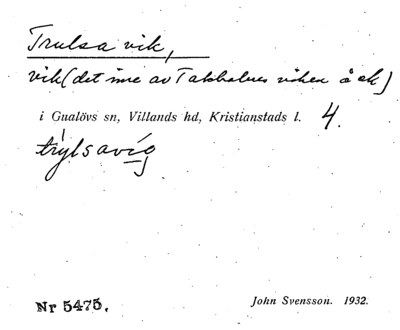 Trulsa vik,
vik (det inre av Takholmsviken å ek)
i Gualövs sn, Villands hd, Kristianstads l. 4.
trylsavíg
Nr 5475. John Svensson. 1932.